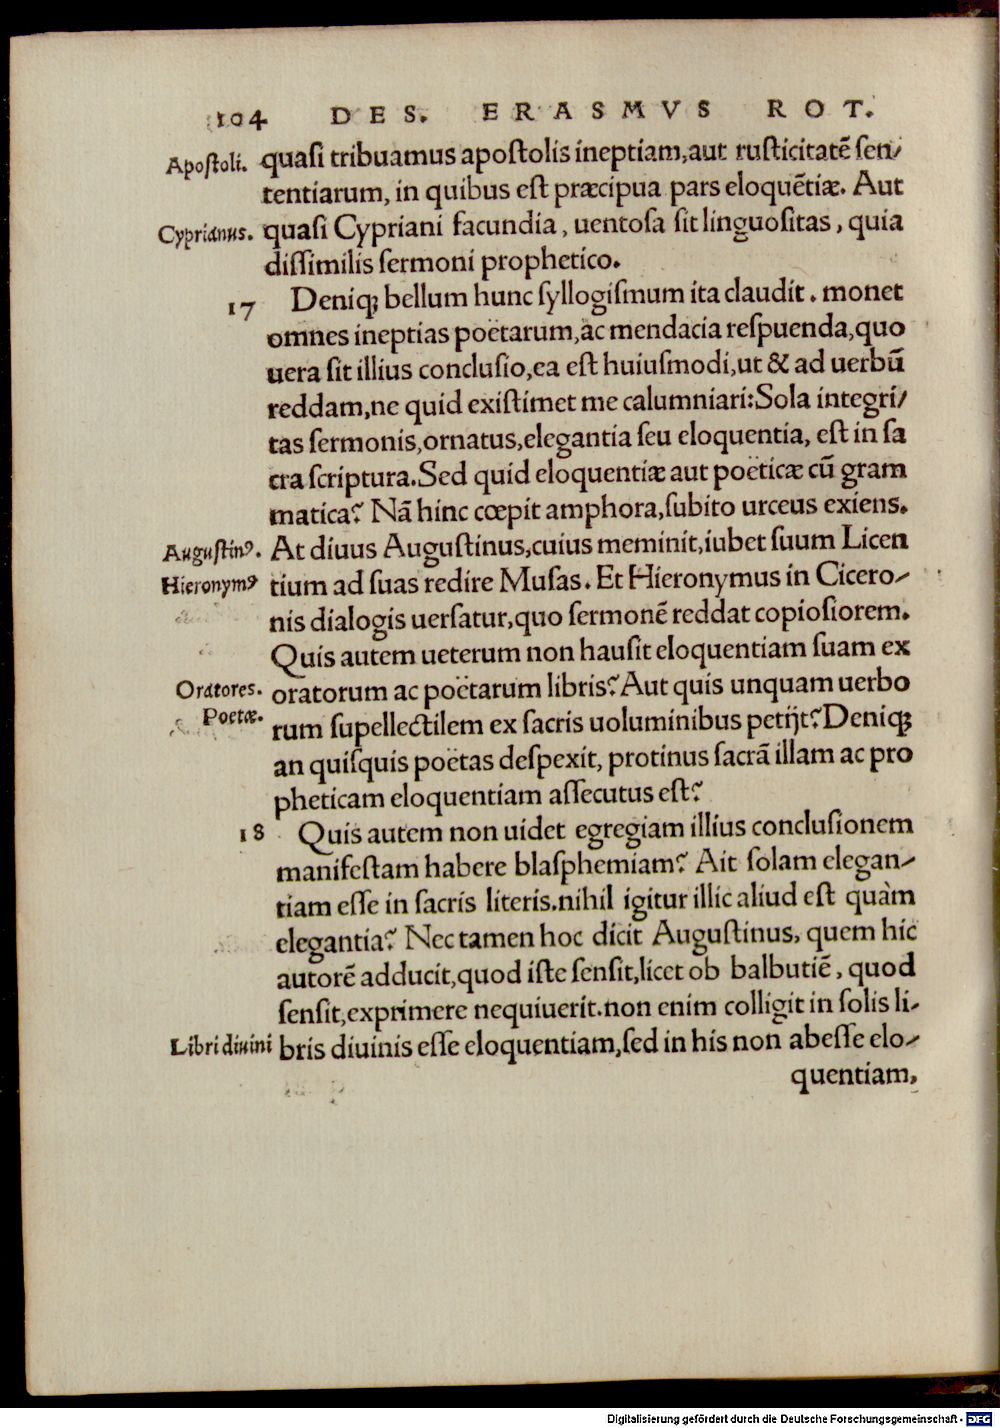 104 DES. ERASMVS ROT.
Apostoli. quasi tribuamus apostolis ineptiam,aut rusticitatē sen/
tentiarum, in quibus est præcipua pars eloquētiæ. Aut
Cyprianus. quasi Cypriani facundia, uentosa sit linguositas, quia
dissimilis sermoni prophetico.
17 Deniq; bellum hunc syllogismum ita claudit. monet
omnes ineptias poëtarum,ac mendacia respuenda,quo
uera sit illius conclusio,ea est huiusmodi,ut & ad uerbū
reddam,ne quid existimet me calumniari:Sola integri/
tas sermonis,ornatus,elegantia seu eloquentia, est in sa
cra scriptura.Sed quid eloquentiæ aut poëticæ cū gram
matica? Nā hinc cœpit amphora,subito urceus exiens.
Augustinꝰ. At diuus Augustinus,cuius meminit,iubet suum Licen
Hieronymꝰ tium ad suas redire Musas. Et Hieronymus in Cicero-
nis dialogis uersatur,quo sermonē reddat copiosiorem.
Quis autem ueterum non hausit eloquentiam suam ex
Oratores. oratorum ac poëtarum libris? Aut quis unquam uerbo
Poetæ. rum supellectilem ex sacris uoluminibus petijt? Deniq;
an quisquis poëtas despexit, protinus sacrā illam ac pro
pheticam eloquentiam assecutus est?
18 Quis autem non uidet egregiam illius conclusionem
manifestam habere blasphemiam? Ait solam elegan-
tiam esse in sacris literis.nihil igitur illic aliud est quàm
elegantia? Nec tamen hoc dicit Augustinus, quem hic
autorē adducit,quod iste sensit,licet ob balbutiē, quod
sensit,exprimere nequiuerit.non enim colligit in solis li-
Libri diuini bris diuinis esse eloquentiam,sed in his non abesse elo-
quentiam,
Digitalisierung gefördert durch die Deutsche Forschungsgemeinschaft - DFG